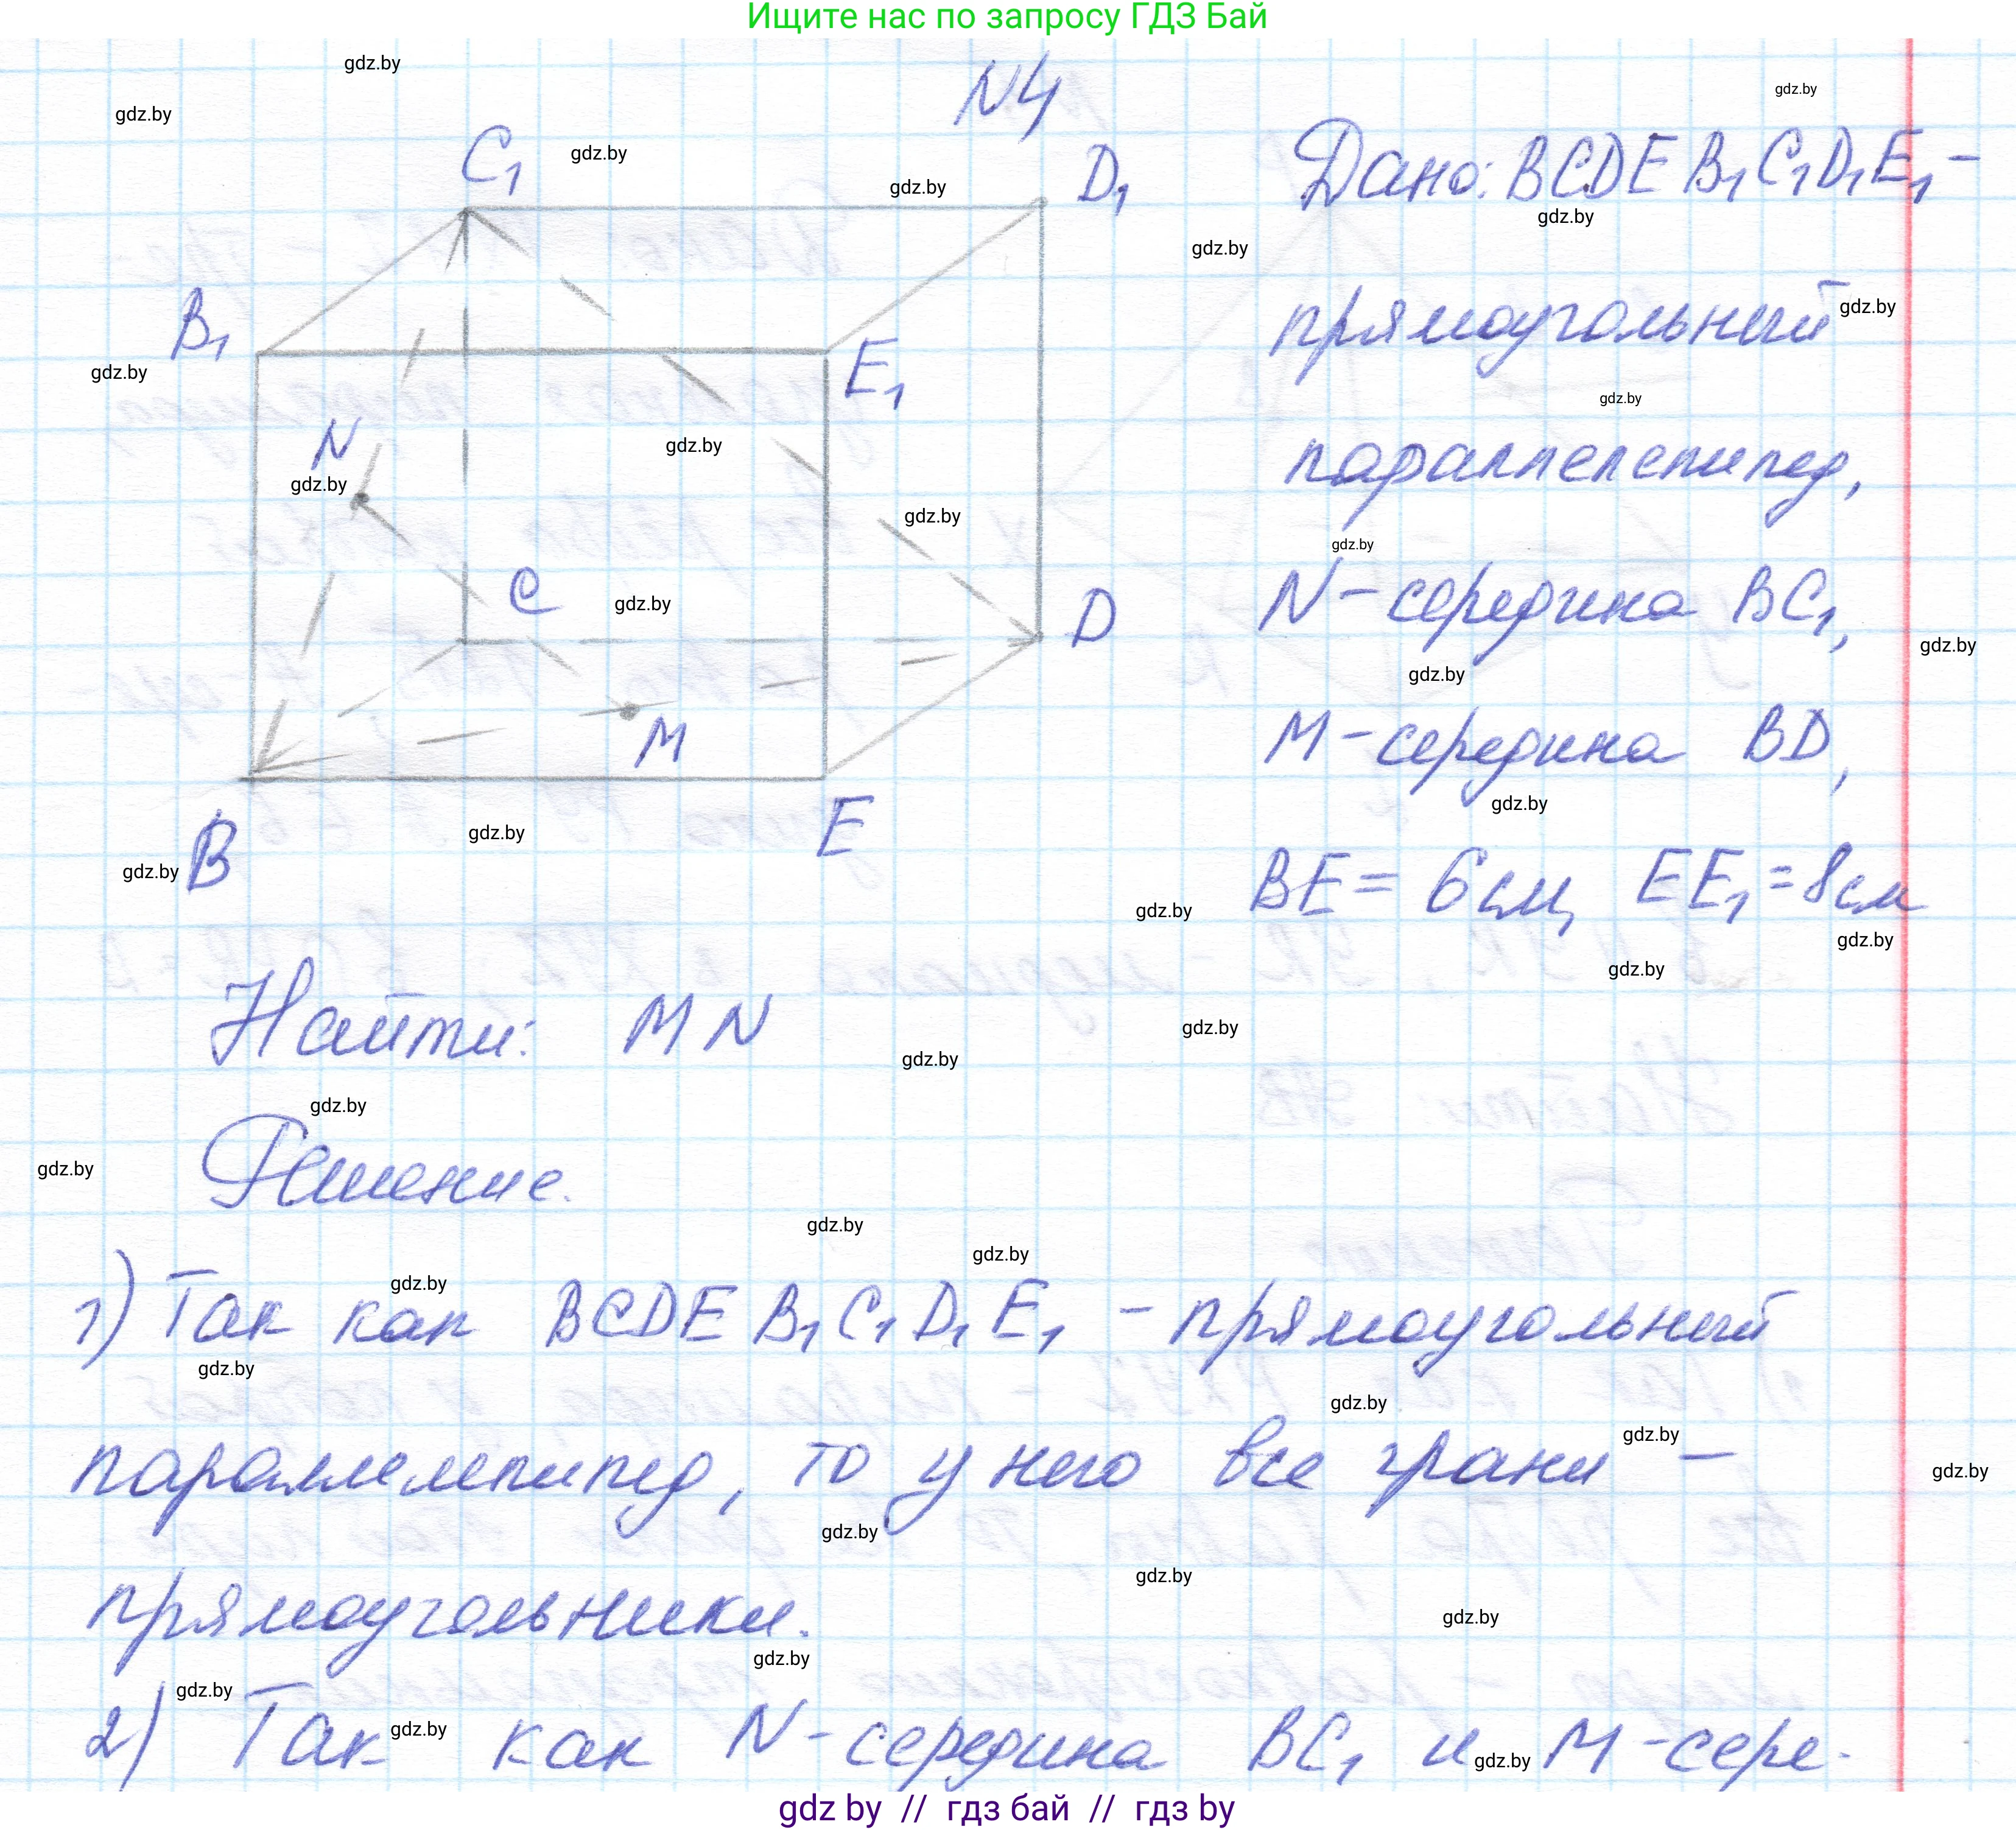 Ищите нас по запросу ГДЗ Бай
N4
Дано: BCDEB₁C₁D₁E₁ –
прямоугольный
параллелепипед,
N – середина BC₁,
M – середина BD,
BE = 6 см, EE₁ = 8 см
C₁
D₁
B₁
E₁
N
C
D
M
B
E
Найти: MN
Решение.
1) Так как BCDEB₁C₁D₁E₁ – прямоугольный
параллелепипед, то у него все грани –
прямоугольники.
2) Так как N – середина BC₁ и M – сере-
gdz.by
gdz by // гдз бай // гдз by